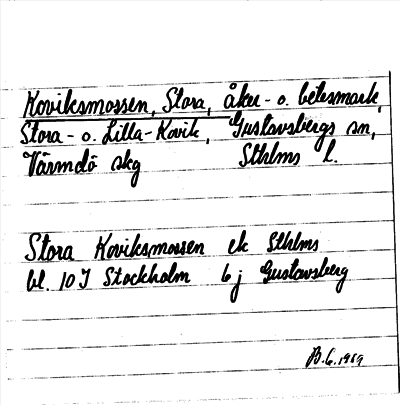 Koviksmossen, Stora, åker- o. betesmark,
Stora- o. Lilla-Kovik, Gustavsbergs sn,
Värmdö skg Sthlms l.
Stora Koviksmossen ek Sthlms
bl. 10 J Stockholm 6 j Gustavsberg
B.G. 1969